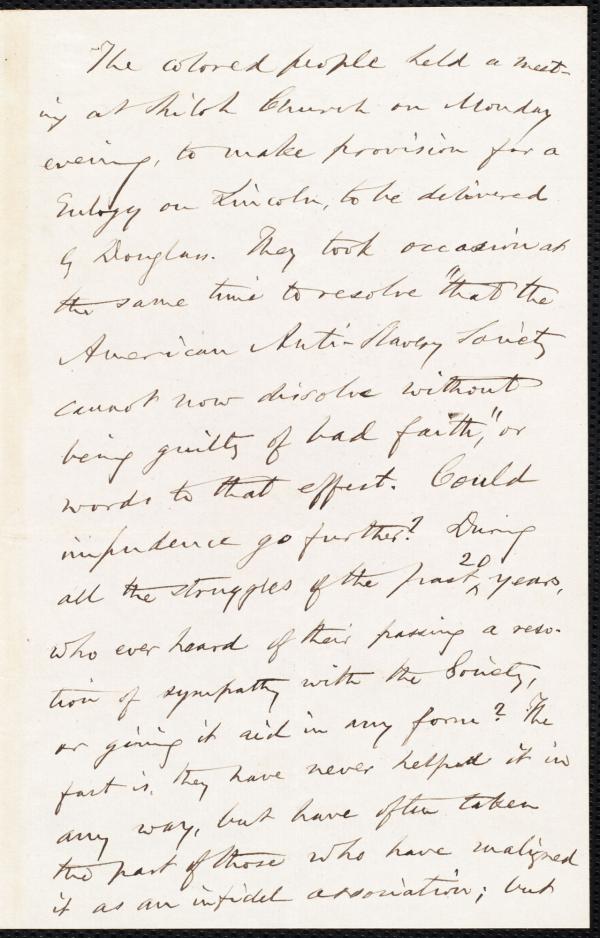 The colored people held a meet-
ing at Shiloh Church on Monday
evening, to make provision for a
Eulogy on Lincoln, to be delivered
by Douglass. They took occasion at
the same time to resolve "that the
American Anti-Slavery Society
cannot now dissolve without
being guilty of bad faith," or
words to that effect. Could
impudence go further? During
all the struggles of the past 20 years,
who ever heard of their passing a reso-
tion of sympathy with the Society,
or giving it aid in any form? The
fact is, they have never helped it in
any way, but have often taken
the part of those who have maligned
it as an infidel association; but